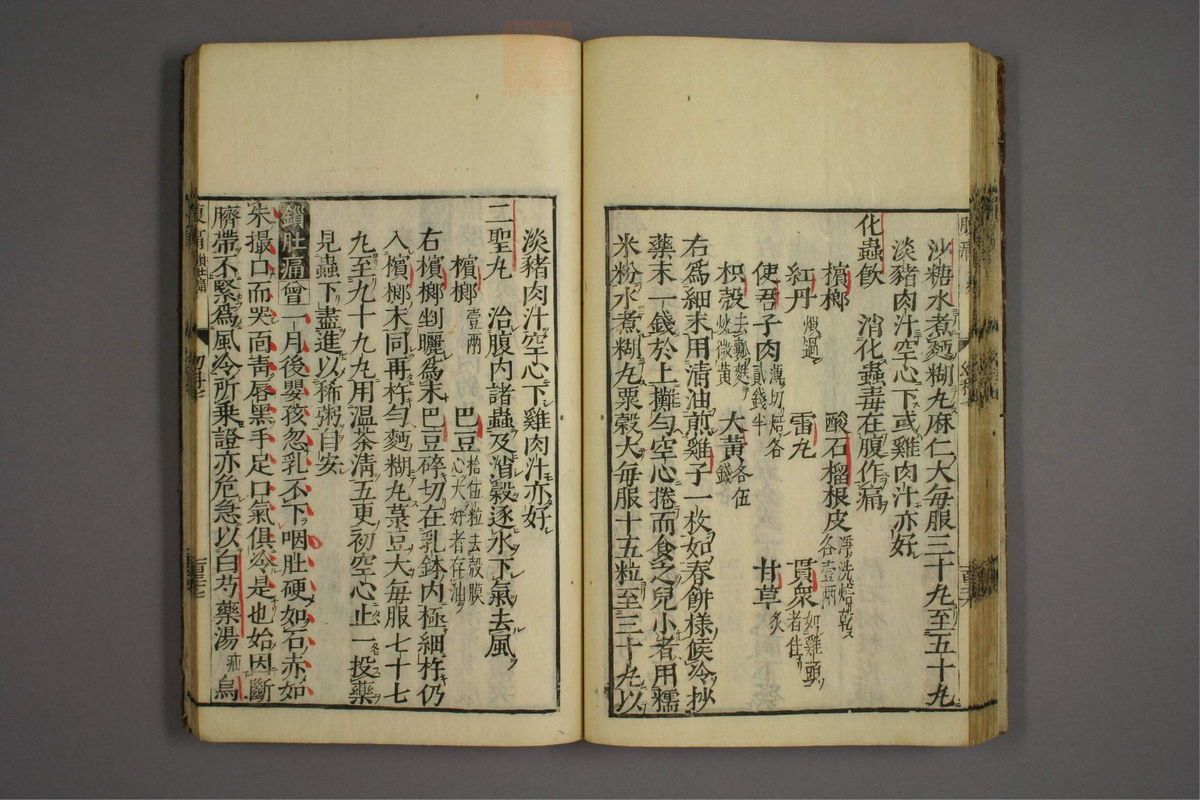 沙糖水煮麪糊丸麻仁大每服三十丸至五十丸
淡豬肉汁空心下或雞肉汁亦好
化蟲飲 消化蟲毒在腹作痛
檳榔 酸石榴根皮淨洗焙乾各壹兩
紅丹煅過 雷丸 貫衆如雞頭者佳
使君子肉薄切焙各貳錢半 甘草炙
枳殼去瓤麩炒微黃 大黃各伍錢
右爲細末用清油煎雞子一枚如春餅樣候冷抄
藥末一錢於上攤勻空心捲而食之兒小者用糯
米粉水煮糊丸粟穀大每服十五粒至三十丸以
淡豬肉汁空心下雞肉汁亦好
二聖丸 治腹內諸蟲及消穀逐水下氣去風
檳榔壹兩 巴豆拾伍粒去殼膜心大好者存油
右檳榔剉曬爲末巴豆碎切在乳鉢內極細杵仍
入檳榔末同再杵勻麪糊丸菉豆大每服七十七
丸至九十九丸用溫茶淸五更初空心止一投藥
見蟲下盡進以稀粥自安
鎖肚痛會一月後嬰孩忽乳不下咽肚硬如石赤如
朱撮口而哭面靑唇黑手足口氣俱冷是也始因斷
臍帶不緊爲風冷所乘證亦危急以白芍藥湯 烏